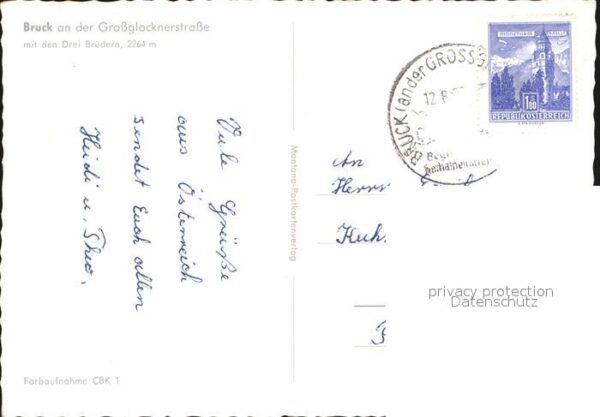 Bruck an der Großglocknerstraße
mit den Drei Brüdern, 2264 m
Viele Grüße
aus Österreich
sendet Euch allen
Heidi u. Theo.
Farbaufnahme CBK 1
Montana-Postkartenverlag
BRUCK (an der GROSSG
12. 8.
1.80
REPUBLIK ÖSTERREICH
An
Herrn
Kuh.
privacy protection
Datenschutz